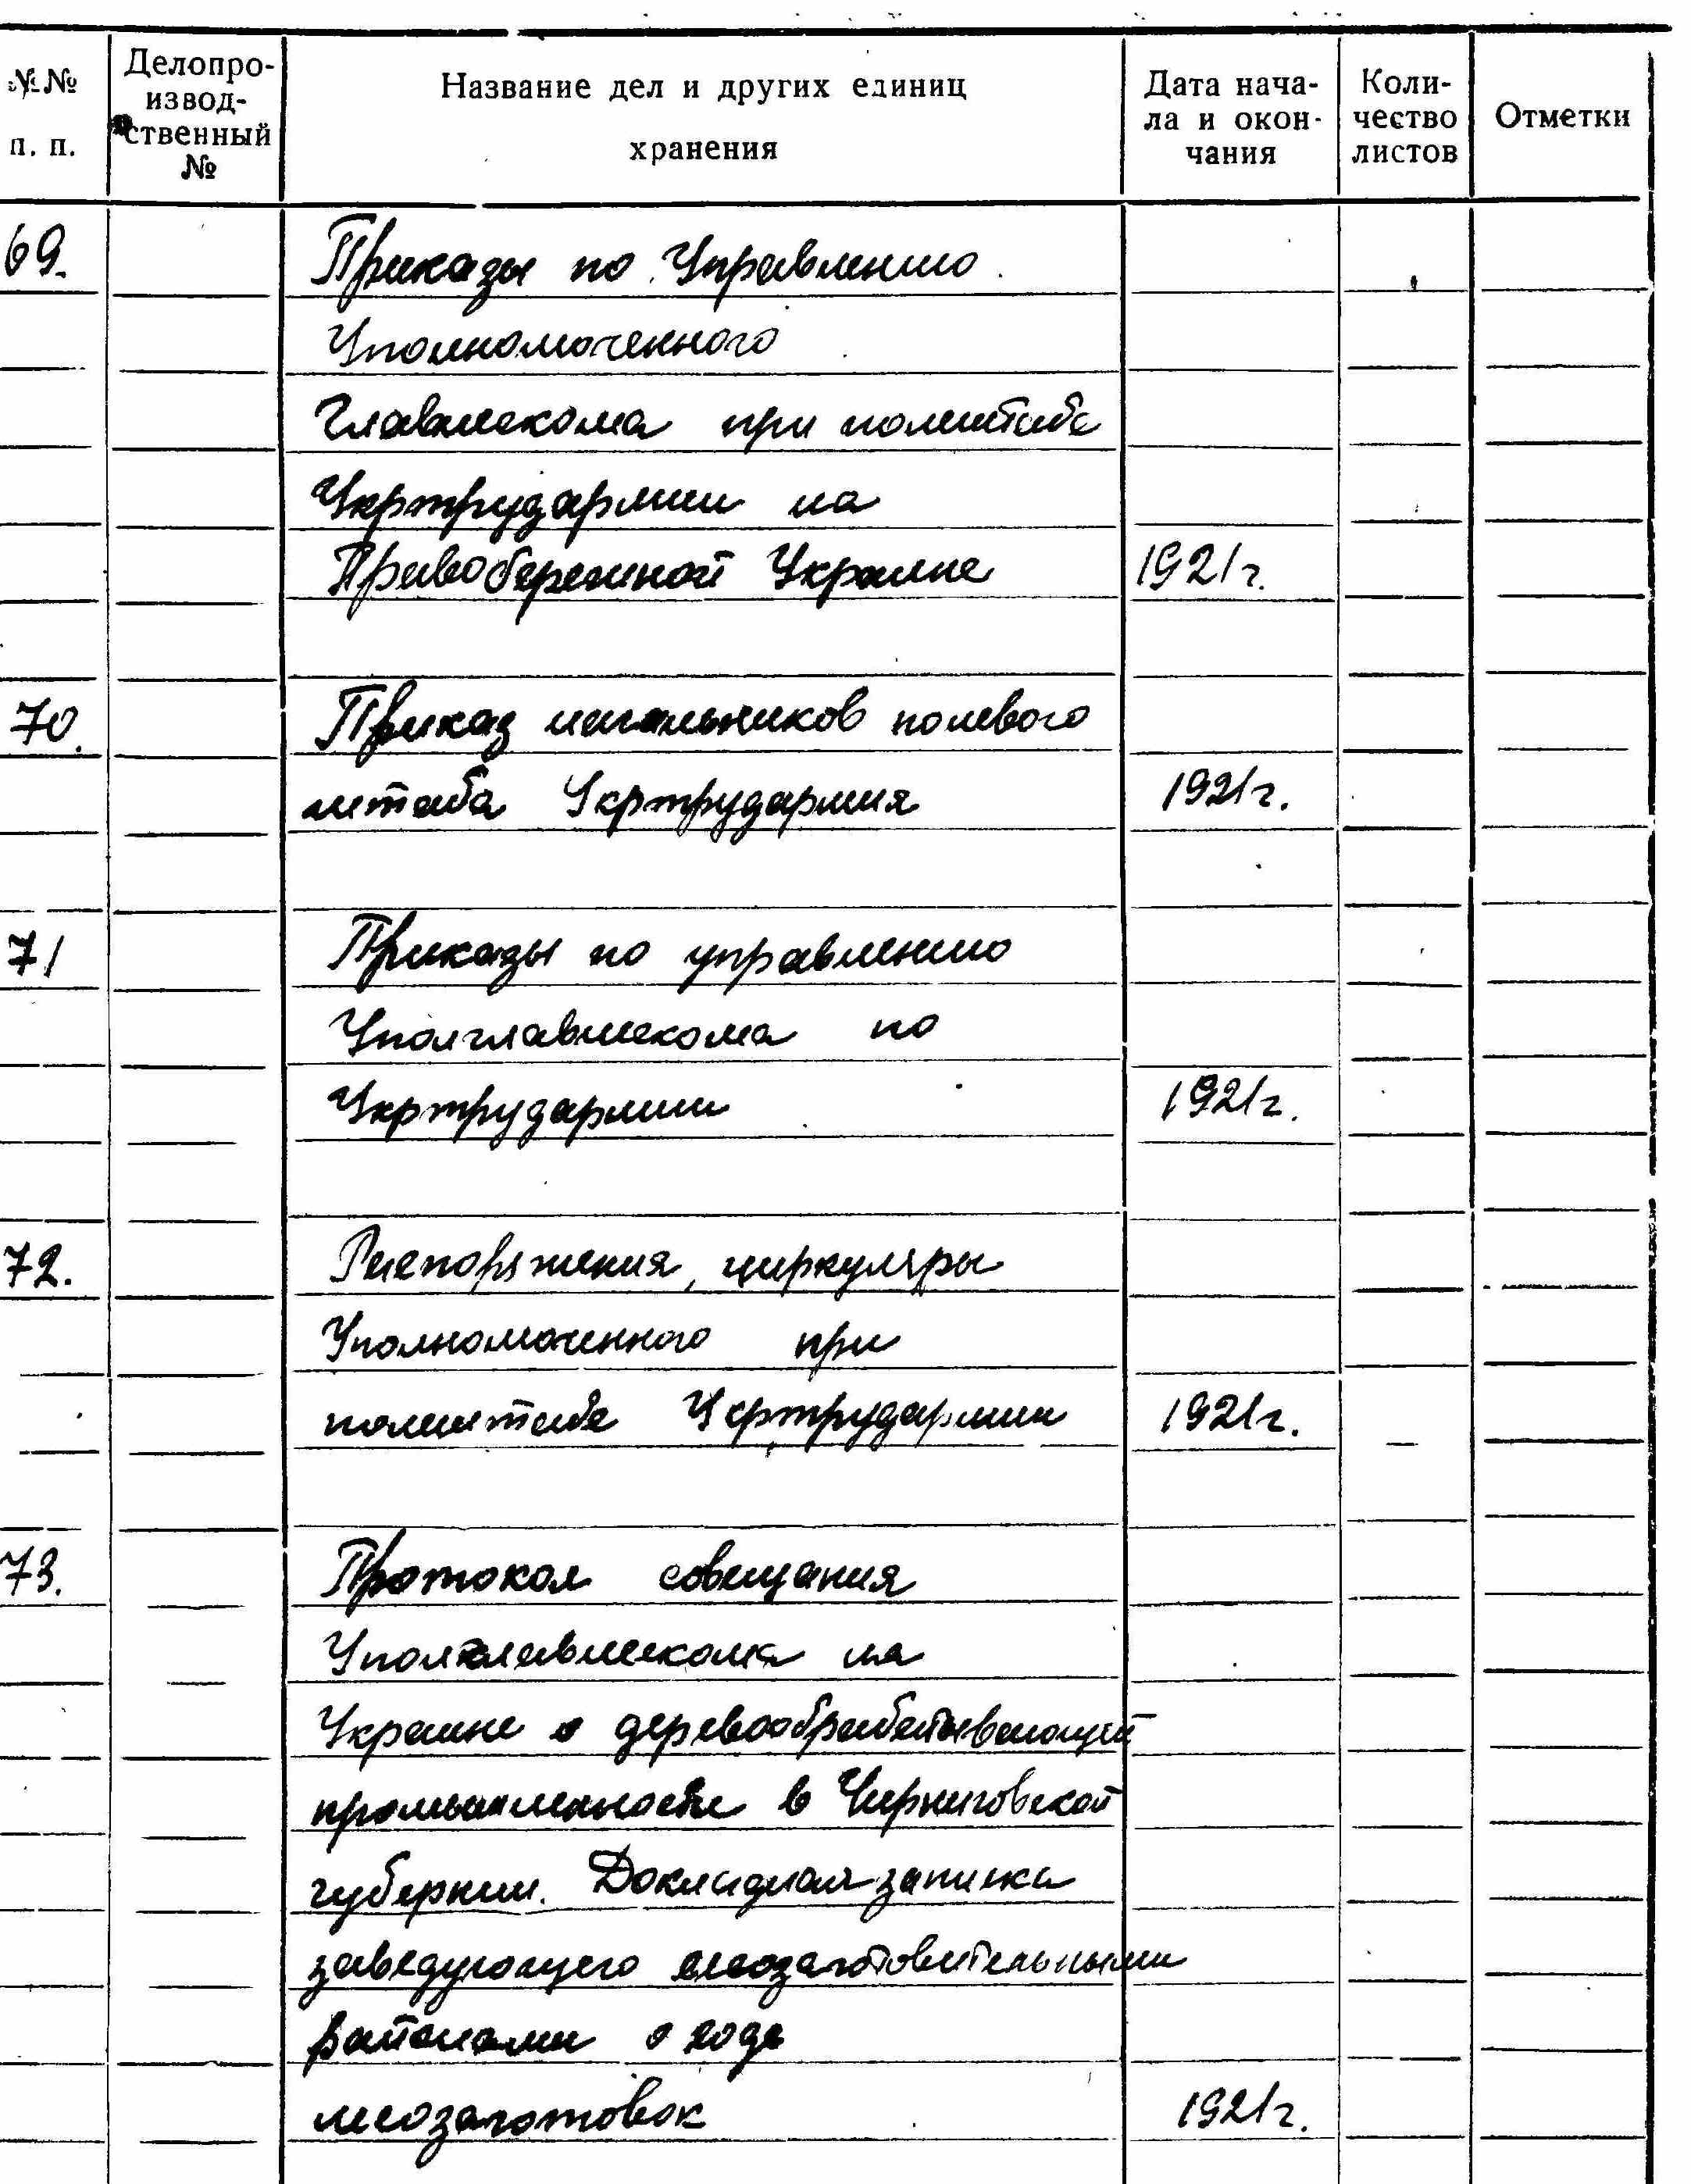 №№ п. п.
Делопро-
извод-
ственный
№
Название дел и других единиц
хранения
Дата нача-
ла и окон-
чания
Коли-
чество
листов
Отметки
69. Приказы по Управлению
Уполномоченного
Главлескома при полештабе
Укртрудармии на
Правобережной Украине 1921г.
70. Приказ начальников полевого
штаба Укртрудармия 1921г.
71 Приказы по управлению
Уполглавлескома по
Укртрудармии 1921г.
72. Распоряжения, циркуляры
Уполномоченного при
полештабе Укртрудармии 1921г.
73. Протокол совещания
Уполглавлескома на
Украине о деревообрабатывающей
промышленности в Черниговской
губернии. Докладная записка
заведующего лесозаготовительными
районами о ходе
лесозаготовок 1921г.